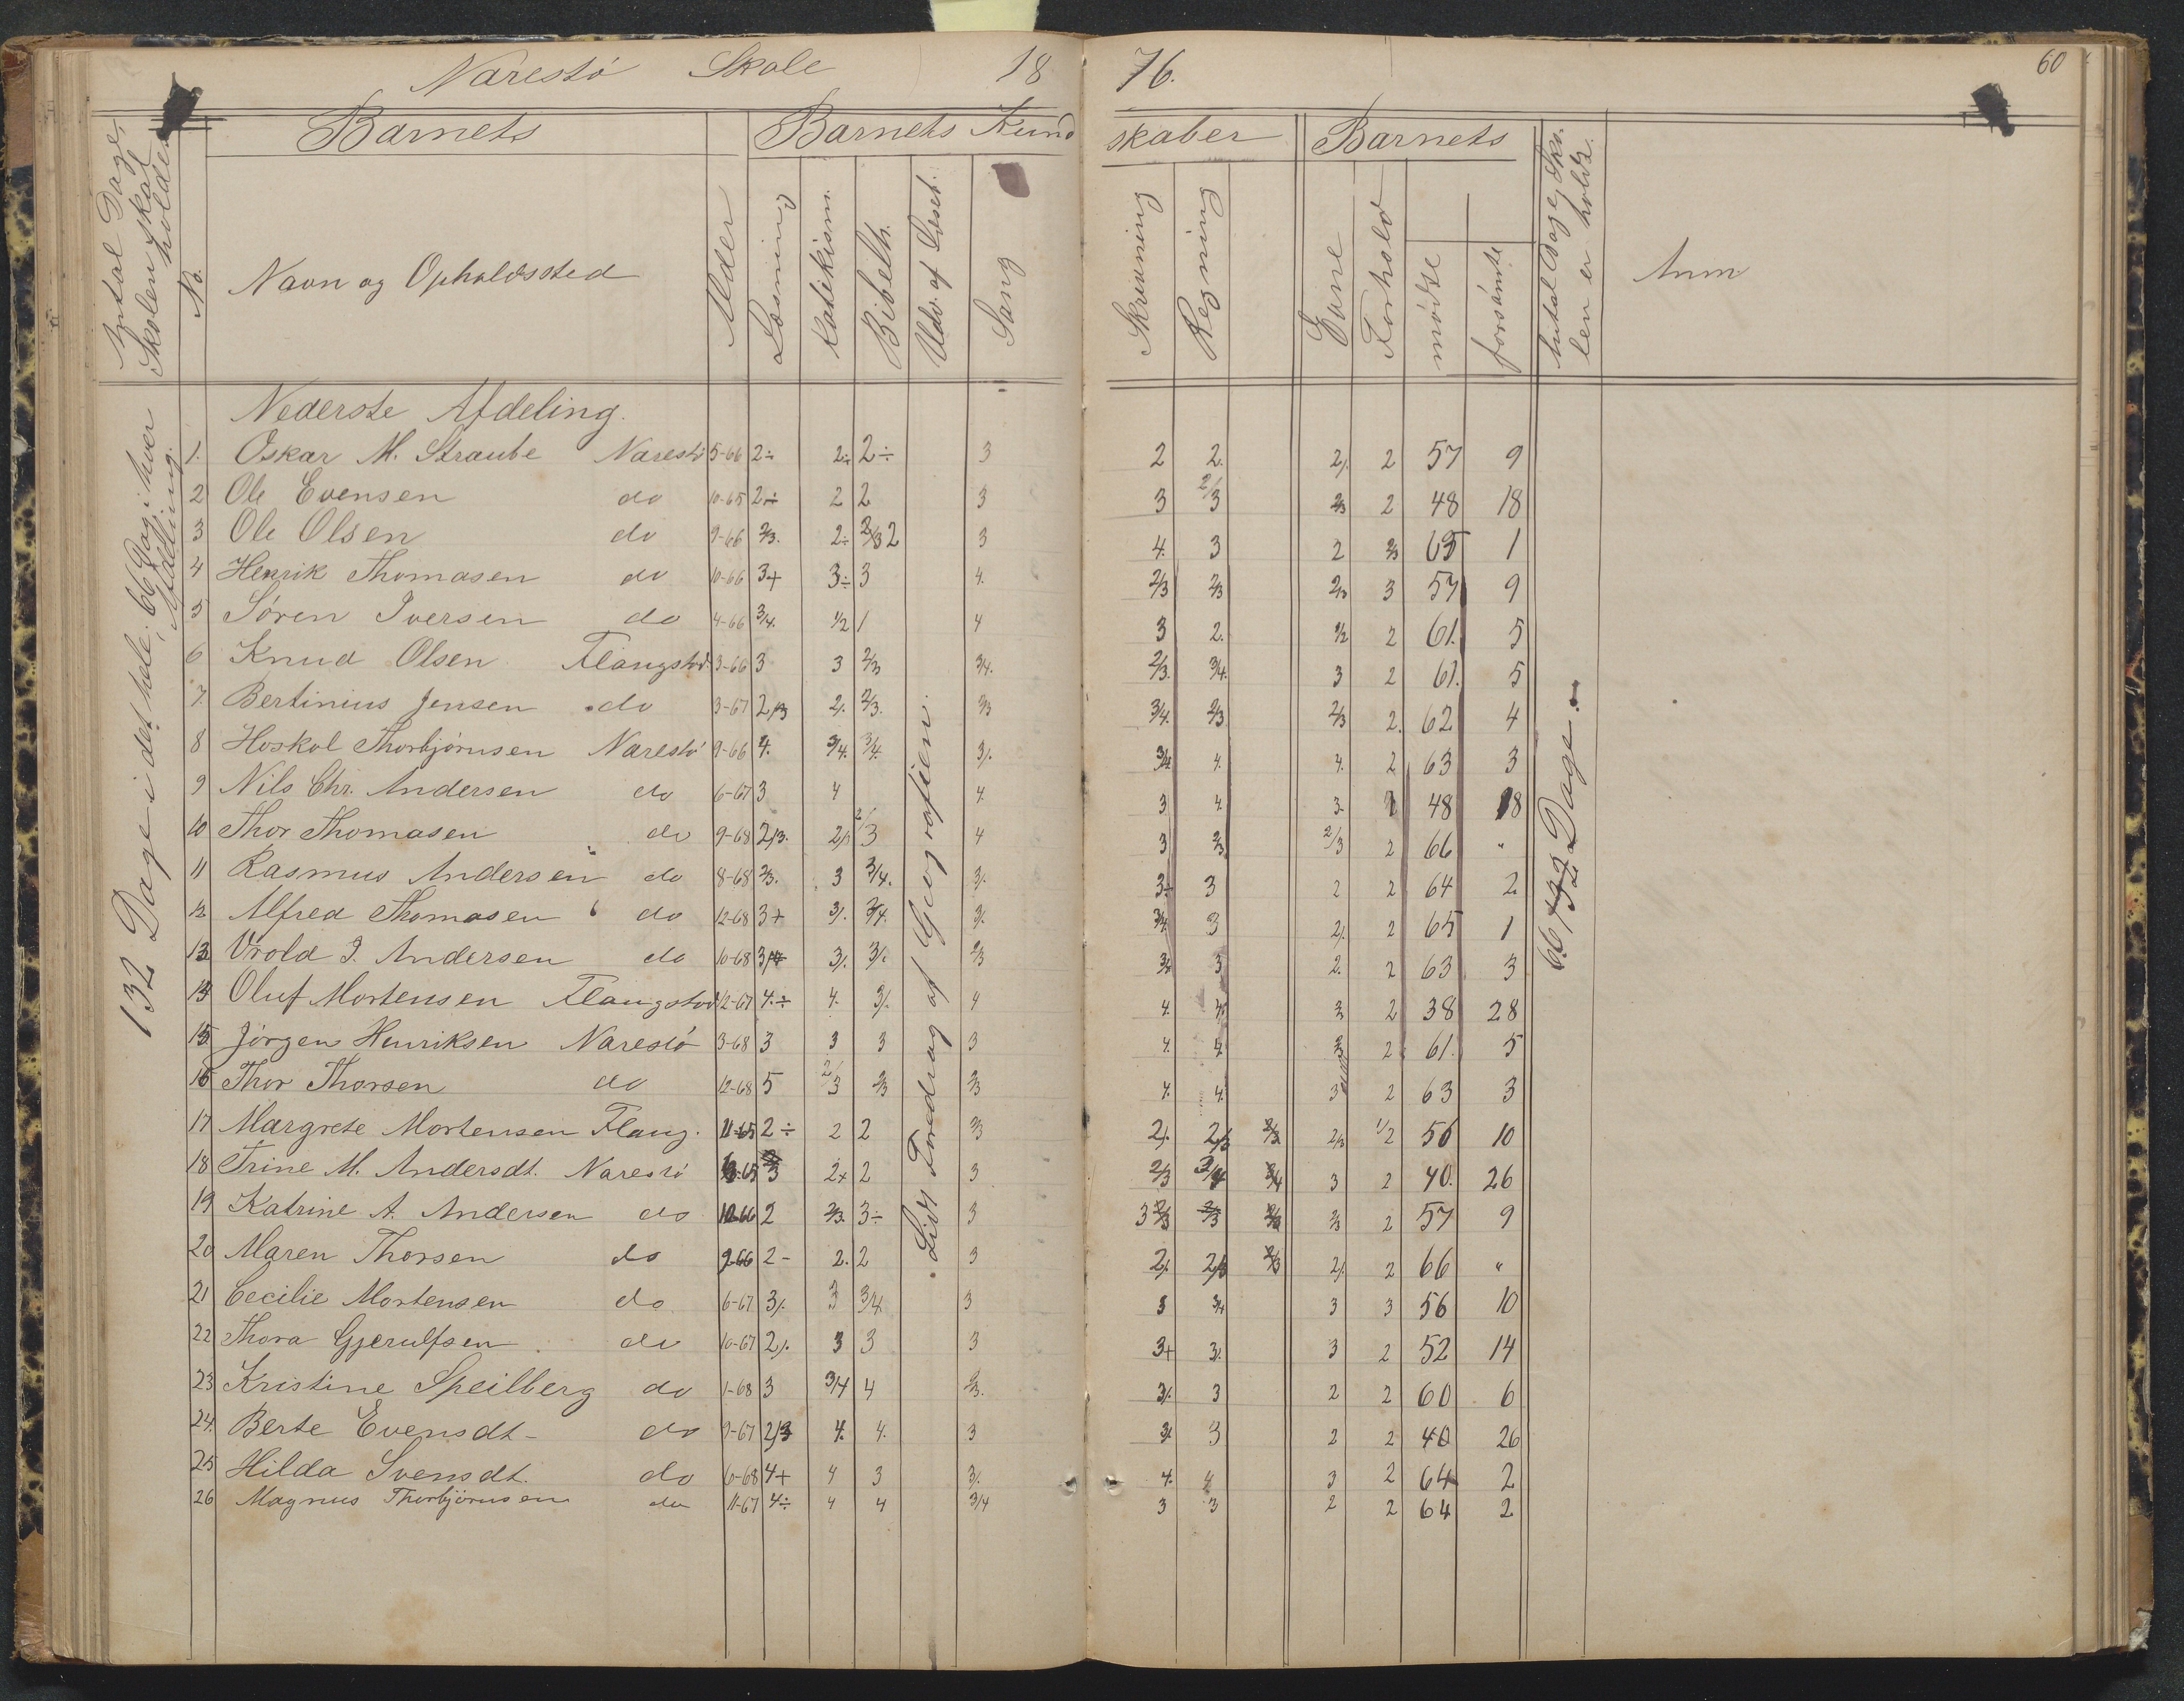 Narestö Skole 1876.
60
Antal Dage, Skolen skal holdes
No.
Barnets
Navn og Opholdssted
Alder
Barnets Kundskaber
Læsning
Katekism.
Bibelh.
Udv. af Læseb.
Sang
Skrivning
Regning
Barnets
Evne
Forhold
mödte
forsömte
Antal Dage, Skolen er holdt.
Anm
132 Dage i det hele. 66 Dag. i hver Afdeling.
Lidt Foredrag af Geografien.
66 / 132 Dage.
Nederste Afdeling.
1. Oskar M. Straube Narestö 5-66 2÷ 2÷ 2÷ 3 2 2. 2/. 2 57 9
2 Ole Evensen do 10-65 2÷ 2 2 3 3 2/3 2/3 2 48 18
3 Ole Olsen do 9-66 2/3. 2÷ 2/3 2 3 4. 3 2 2/3 65 1
4 Henrik Thomasen do 10-66 3+ 3÷ 3 4. 2/3 2/3 2/3 3 57 9
5 Sören Iversen do 4-66 3/4. 1/2 1 4 3 2. 1/2 2 61. 5
6 Knud Olsen Flangstad. 3-66 3 3 2/3 3/4. 2/3. 3/4. 3 2 61. 5
7. Bertinius Jensen do 3-67 2/3 2/. 2/3. 2/3 3/4. 2/3 2/3 2. 62 4
8 Hoskol Thorbjörnsen Narestö 9-66 4. 3/4. 3/4. 3/. 3/4 4. 4. 2 63 3
9 Nils Chr. Andersen do 6-67 3 4 4. 3 4. 3. 48 18
10 Thor Thomasen do 9-68 2/3. 2/3 2/3 4 3 2/3 2/3 2 66 "
11 Rasmus Andersen do 8-68 2/3. 3 3/4. 3/. 3÷ 3 2 2 64 2
12 Alfred Thomasen do 12-68 3+ 3/. 3/4. 3/. 3/4 3 2/. 2 65 1
13 Vrold I. Andersen do 10-68 3/4 3/. 3/. 2/3 3/4 3 2. 2 63 3
14 Oluf Mortensen Flangstad 12-67 4.÷ 4. 3/. 4 4. 4. 3 2 38 28
15 Jörgen Henriksen Narestö 3-68 3 3 3 3 4. 4. 2/3 2 61. 5
16 Thor Thorsen do 12-68 5 2/3 2/3 2/3 4. 4. 3 2 63 3
17 Margrete Mortensen Flang. 11-65 2÷ 2 2 2/3 2/. 2/3 2/3 2/3 1/2 56 10
18 Trine M. Andersdt. Narestö 2/3 2+ 2 3 2/3 3/4 3/4 3 2 40. 26
19 Katrine A. Andersen do 10-66 2 2/3. 3÷ 3 3 2/3 2/3 2/3 2/3 2 57 9
20 Maren Thorsen do 9-66 2- 2. 2 3 2/. 2/3 2/3 2/. 2 66 "
21 Cecilie Mortensen do 6-67 3/. 3 3/4. 3 3 3/4 3 3 56 10
22 Thora Gjerulfsen do 10-67 2/. 3 3 3 3+ 3/. 3 2 52 14
23 Kristine Speilberg do 1-68 3 3/4 4 2/3. 3/. 3 2 2 60 6
24. Berte Evensdt- do 9-67 2/3 4. 4. 3 3/. 3 2 2 40 26
25 Hilda Svensdt. do 6-68 4+ 4 3 3/. 4. 4 3 2 64 2
26 Magnus Thorbjörnsen do 11-67 4÷ 4 4 3/4 3 3 2 2 64 2